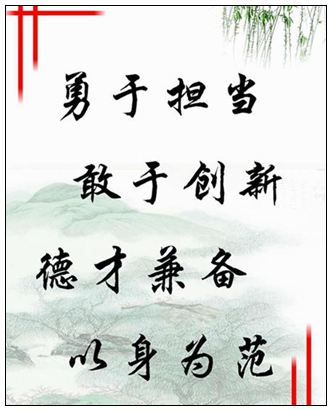 勇于担当
敢于创新
德才兼备
以身为范